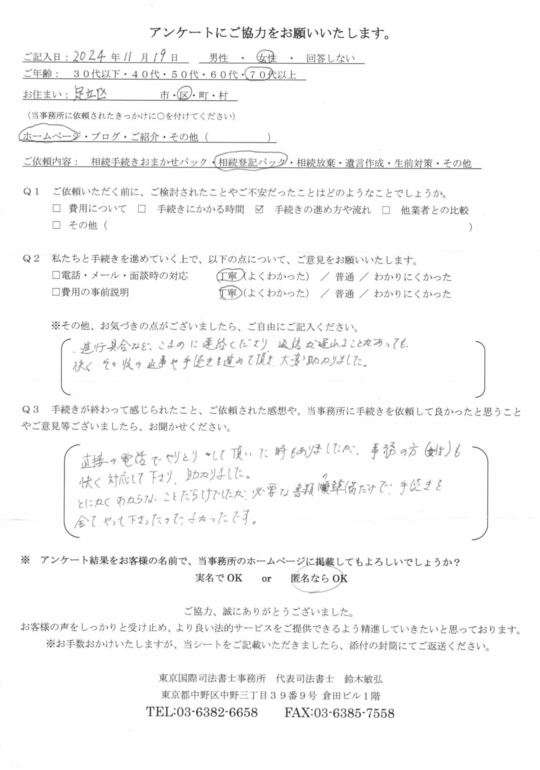 アンケートにご協力をお願いいたします。
ご記入日：2024年11月19日　男性 ・ 女性 ・ 回答しない
ご年齢：　30代以下・40代・50代・60代・70代以上
お住まい：足立区　市・区・町・村
（当事務所に依頼されたきっかけに○を付けてください）
ホームページ・ブログ・ご紹介・その他（　　　　　）
ご依頼内容：　相続手続きおまかせパック・相続登記パック・相続放棄・遺言作成・生前対策・その他
Q1　ご依頼いただく前に、ご検討されたことやご不安だったことはどのようなことでしょうか。
□ 費用について　□ 手続きにかかる時間　☑ 手続きの進め方や流れ　□ 他業者との比較
□ その他（　　　　　）
Q2　私たちと手続きを進めていく上で、以下の点について、ご意見をお願いいたします。
□電話・メール・面談時の対応　丁寧（よくわかった） ／ 普通 ／ わかりにくかった
□費用の事前説明　丁寧（よくわかった） ／ 普通 ／ わかりにくかった
※その他、お気づきの点がございましたら、ご自由にご記入ください。
・進行具合など、こまめに連絡くださり 返信が遅れることがあっても、
快く その後の返事や手続きを進めて頂き 大変助かりました。
Q3　手続きが終わって感じられたこと、ご依頼された感想や、当事務所に手続きを依頼して良かったと思うこと
やご意見等ございましたら、お聞かせください。
直接の電話でやりとりして頂いた時もありましたが、事務の方(女性)も
快く対応して下さり、助かりました。
とにかくわからないことだらけでしたが、必要な書類の準備だけで、手続きを
全てやって下さったので、よかったです。
※　アンケート結果をお客様の名前で、当事務所のホームページに掲載してもよろしいでしょうか？
実名でOK　or　匿名ならOK
ご協力、誠にありがとうございました。
お客様の声をしっかりと受け止め、より良い法的サービスをご提供できるよう精進していきたいと思っております。
※お手数おかけいたしますが、当シートをご記載いただきましたら、添付の封筒にてご返送ください。
東京国際司法書士事務所　代表司法書士　鈴木敏弘
東京都中野区中野三丁目39番9号 倉田ビル1階
TEL:03-6382-6658　FAX:03-6385-7558